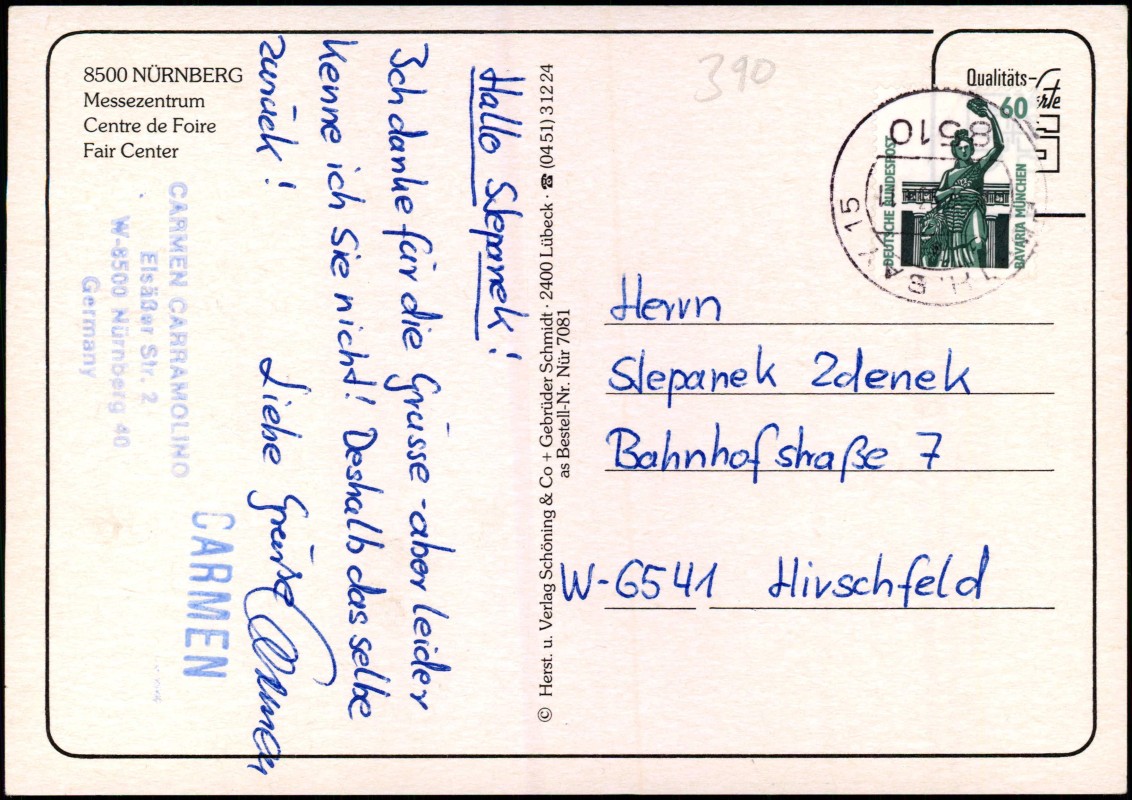 8500 NÜRNBERG
Messezentrum
Centre de Foire
Fair Center
Hallo Slepanek!
Ich danke für die Grüsse - aber leider
kenne ich Sie nicht! Deshalb das selbe
zurück!
Liebe Grüße
CARMEN CARRAMOLINO
Elsäßer Str. 2
W-8500 Nürnberg 40
Germany
CARMEN
© Herst. u. Verlag Schöning & Co + Gebrüder Schmidt · 2400 Lübeck · ☎ (04 51) 3 12 24
as Bestell-Nr. Nür 7081
390
Qualitäts-
60
DEUTSCHE BUNDESPOST
BAVARIA MÜNCHEN
8510
15
Herrn
Slepanek Zdenek
Bahnhofstraße 7
W-6541 Hirschfeld